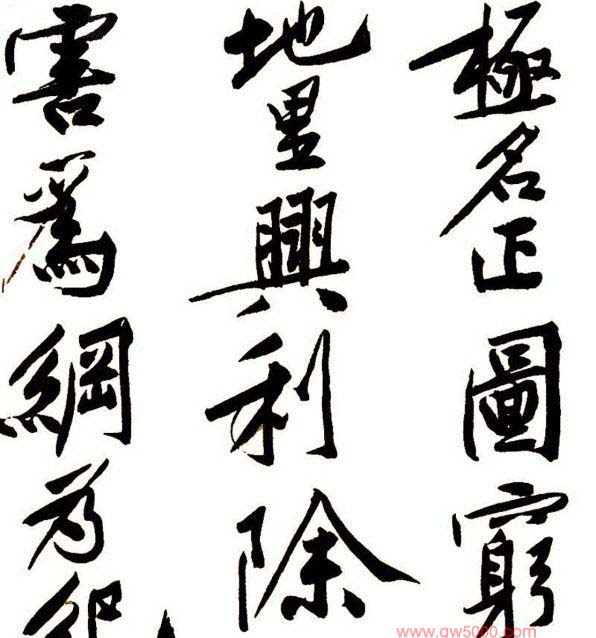 極名正圖窮
地里興利除
害爲綱爲紀
www.qw5000.com